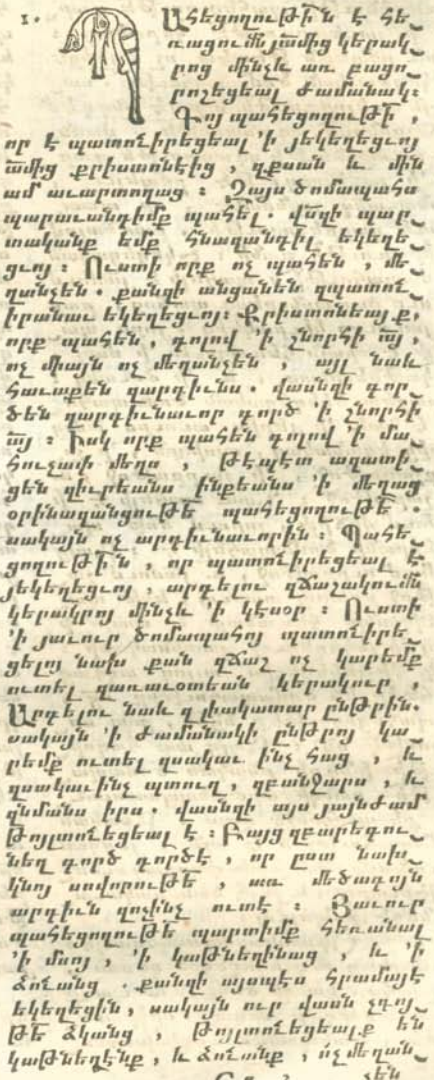 1. Պահեցողութի՟ն է հե֊
ռացումն յամից կերակ֊
րոց մինչև առ բացո֊
րոշեցեալ ժամանակ։
Գոյ պահեցողութի՟ ,
որ է պատուիրեցեալ 'ի յեկեղեցւոյ
ամից քրիստոնէից , զքսան և մին
ամ աւարտողաց ։ Զայս ծոմապահս
պարաւանդիմք պահել . վս՟զի պար֊
տականք եմք հնազանդիլ եկեղե֊
ցւոյ ։ Ուստի որք ոչ պահեն , մե֊
ղանչեն . քանզի անցանեն զպատուի֊
րանաւ եկեղեցւոյ։ Քրիստոնեայք,
որք պահեն , գոլով 'ի շնորհի ա՟յ ,
ոչ միայն ոչ մեղանչեն , այլ նաև
հաւաքեն զարդիւնս . վասնզի գոր֊
ծեն զարդիւնաւոր գործ 'ի շնորհի
ա՟յ ։ Իսկ որք պահեն գոլով 'ի մա֊
հուչափ մեղս , թէպէտ ազատի֊
ցեն զիւրեանս ինքեանս 'ի մեղաց
օրինազանցութե՟ պահեցողութե՟ .
սակայն ոչ արդիւնաւորին ։ Պահե֊
ցողութի՟ն , որ պատուիրեցեալ է
յեկեղեցւոյ , արգելու զճաշակումն
կերակրոյ մինչև 'ի կէսօր ։ Ուստի
'ի յաւուր ծոմապահոյ պատուիրե֊
ցելոյ նախ քան զճաշ ոչ կարեմք
ուտել զառաւօտեան կերակուր ,
Արգելու նաև զլիակատար ընթրին.
սակայն 'ի ժամանակի ընթրոյ կա֊
րեմք ուտել զսակաւ ինչ հաց , և
զսակաւ ինչ պտուղ , զբանջարս , և
զնմանս իրս . վասնզի այս յայնժամ
թոյլտուեցեալ է ։ Բայց զբարեգու֊
նեղ գործ գործէ , որ ըստ նախ֊
կնոյ սովորութե՟ , առ մեծագոյն
արդիւն զոչինչ ուտէ ։ Յաւուր
պահեցողութե՟ պարտիմք հեռանալ
'ի մսոյ , 'ի կաթնեղինաց , և 'ի
ձուանց . քանզի այսպէս հրամայէ
եկեղեցին , սակայն ուր վասն չգոյ֊
թե՟ ձկանց , թոյլտուեցեալք են
կաթնեղէնք , և ձուանք , ոչ մեղան֊
չեն